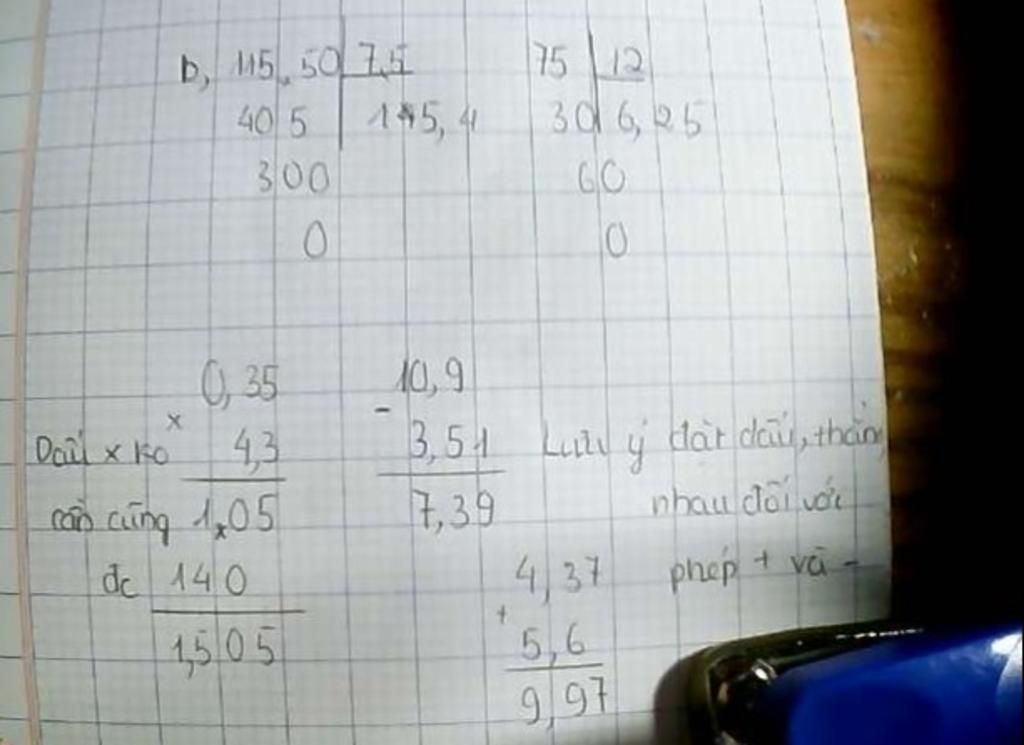 b, 115,50 7,5
40 5 15,4
300
0
75 12
30 6,25
60
0
0,35
×
4,3
1,05
140
1,505
Dấu × ko
cần cũng
đc
10,9
-
3,51
7,39
Lưu ý đặt dấu, thẳng
nhau đối với
phép + và -
4,37
+
5,6
9,97